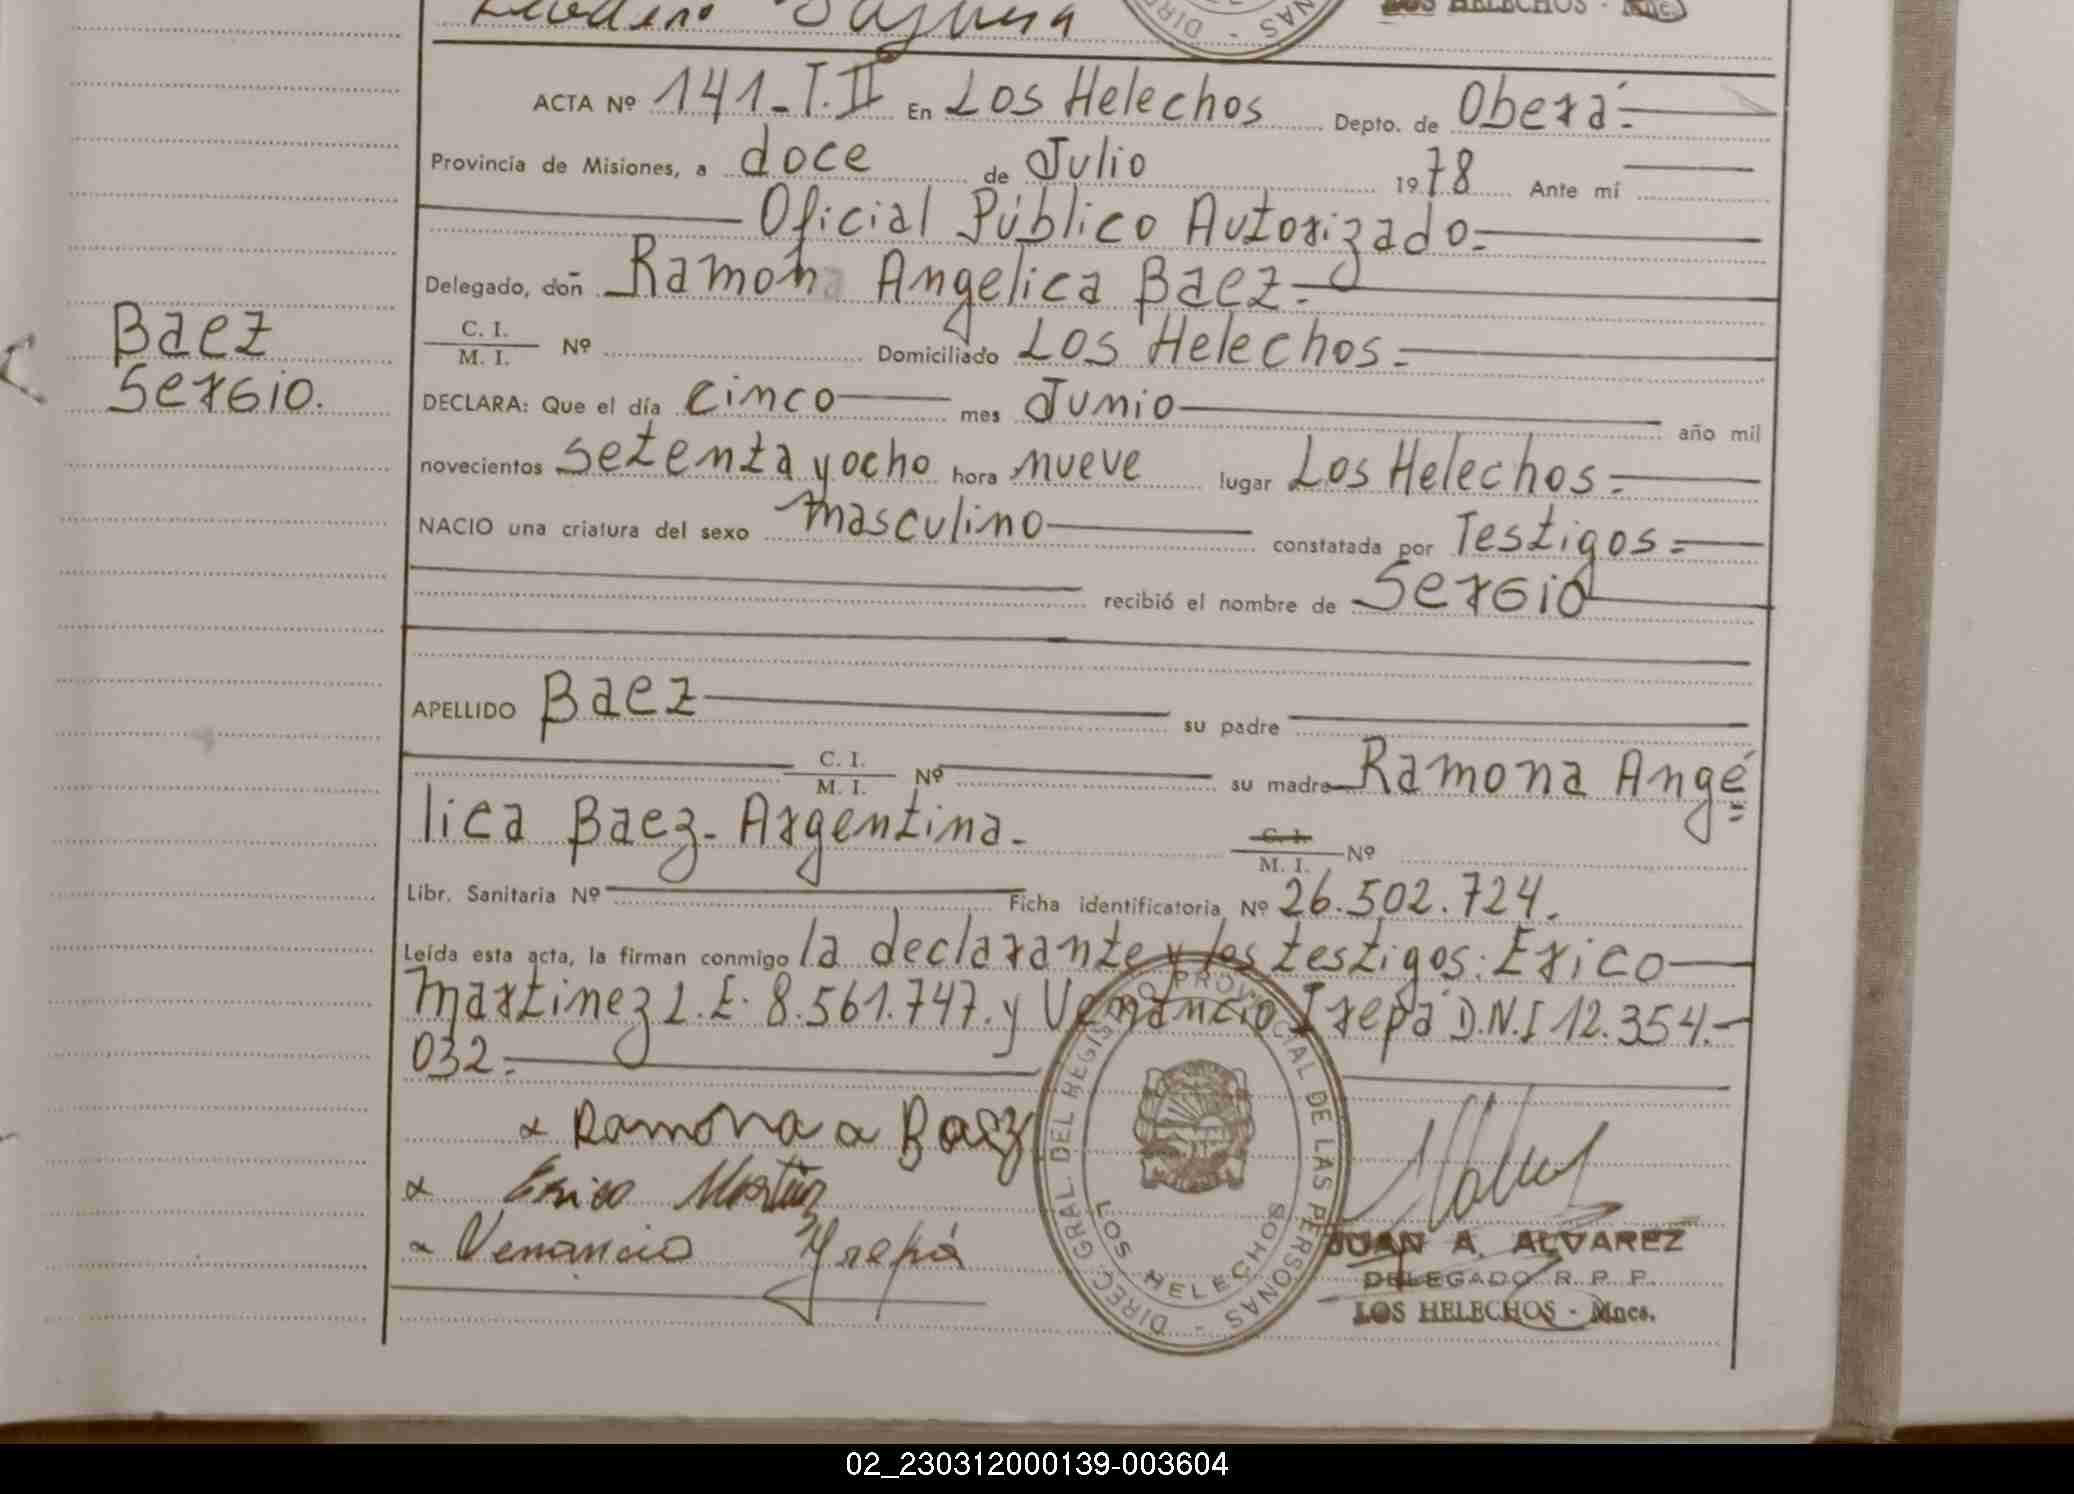 LOS HELECHOS - Mnc.
ACTA Nº 141-T.II En Los Helechos Depto. de Oberá.
Provincia de Misiones, a doce de Julio 1978 Ante mí
Oficial Público Autorizado.
Delegado, doñ Ramona Angelica Baez.
C. I.
M. I. Nº Domiciliado Los Helechos.
Baez
Sergio.
DECLARA: Que el día cinco mes Junio año mil
novecientos setenta y ocho hora nueve lugar Los Helechos.
NACIO una criatura del sexo masculino constatada por Testigos.
recibió el nombre de Sergio
APELLIDO Baez su padre
C. I.
M. I. Nº su madre Ramona Angé=
lica Baez. Argentina. C. I.
M. I. Nº
Libr. Sanitaria Nº Ficha identificatoria Nº 26.502.724.
Leída esta acta, la firman conmigo la declarante y los testigos: Erico
Martinez L.E. 8.561.747. y Venancio Irepá D.N.I 12.354.-
032.
Ramona a Baez
Erico Martinez
Venancio Yrepá
DIREC. GRAL. DEL REGISTRO PROVINCIAL DE LAS PERSONAS -
LOS HELECHOS
JUAN A. ALVAREZ
DELEGADO R. P. P.
LOS HELECHOS - Mnes.
02_230312000139-003604